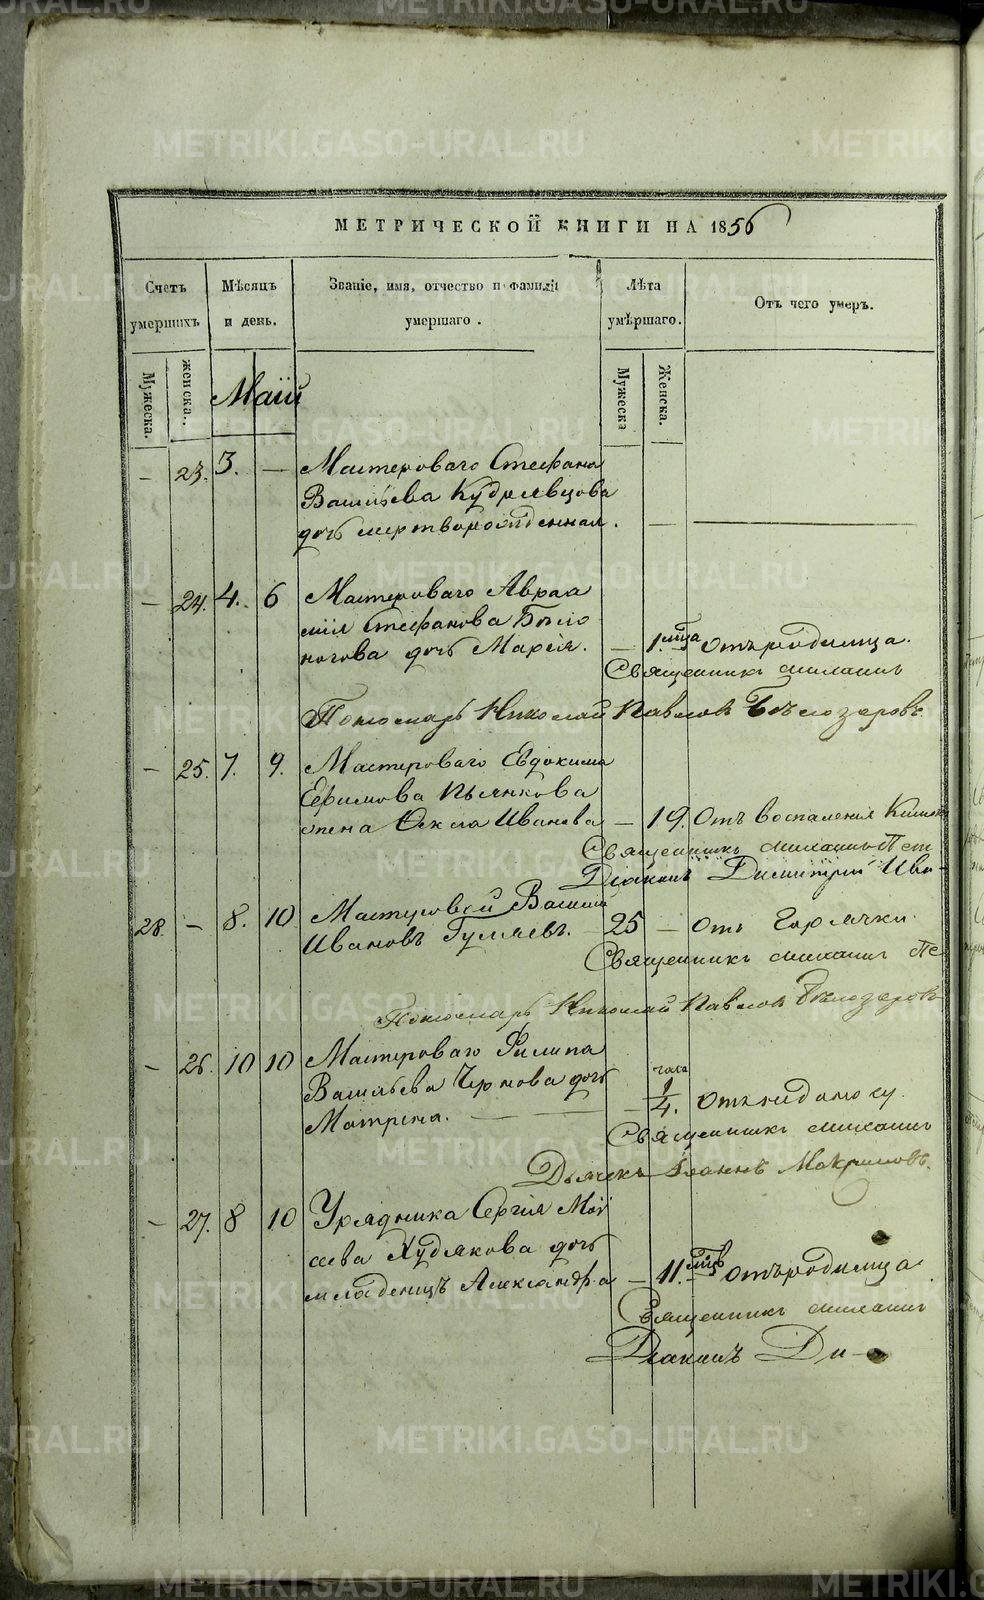 METRIKI.GASO-URAL.RU
МЕТРИЧЕСКОЙ КНИГИ НА 1856
Счетъ умершихъ
Мѣсяцъ и день.
Званіе, имя, отчество и фамилія умершаго.
Лѣта умѣршаго.
Отъ чего умеръ.
Мужеска.
женска.
Маій
Мужеска
Женска.
— 23. 3. — Мастероваго Стефана
Васильева Кудрявцова
дочь мертворожденная. —
— 24. 4. 6 Мастероваго Авраа
мія Стефанова Бѣло
ногова дочь Марія. — 1. мца Отъ родимца.
Священникъ Михаилъ
Пономарь Николай Павловъ Бѣлозеровъ
— 25. 7. 9. Мастероваго Евдокима
Ефимова Пьянкова
жена Ѳекла Иванова — 19. Отъ воспаления
Священникъ Михаилъ Пет
Діаконъ Димитрій Ива-
28. — 8. 10. Мастеровой Василій
Ивановъ Гуляевъ. 25 — Отъ Горячки.
Священникъ Михаилъ Пе
Пономарь Николай Павловъ Бѣлозеровъ
— 26. 10 10 Мастероваго Филипа
Васильева Чернова дочь
Матрена. — часа 1/4. Отъ недоноску.
Священникъ Михаилъ
Дьячекъ Іоаннъ Макримовъ.
— 27. 8 10 Урядника Сергія Мои
сева Худякова дочь
младенецъ Александра — 11. мцв Отъ родимца
Священникъ Михаилъ
Діаконъ Ди-